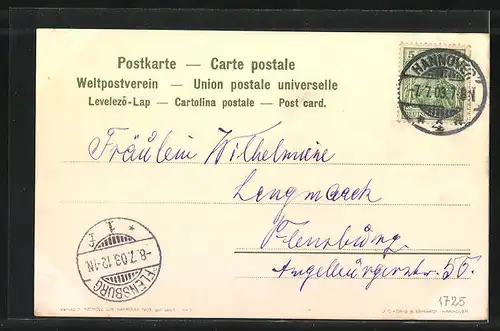 Postkarte — Carte postale
Weltpostverein — Union postale universelle
Levelező-Lap — Cartolina postale — Post card.
HANNOVER
-7.7.03.7-8N.
Fräulein Wilhelmine
Lengmarch
Flensburg.
Angelburgerstr. 55.
1
-8.7.03.12-1N.
FLENSBURG
1725
HANNOVER